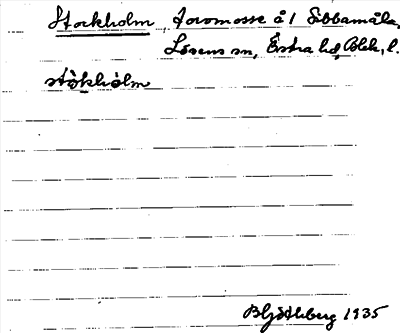 Stockholm, Torvmosse å 1 Sibbamåla,
Lösens sn, Östra hd, Blek. l.
stòkhòlm
B Hjöthberg 1935